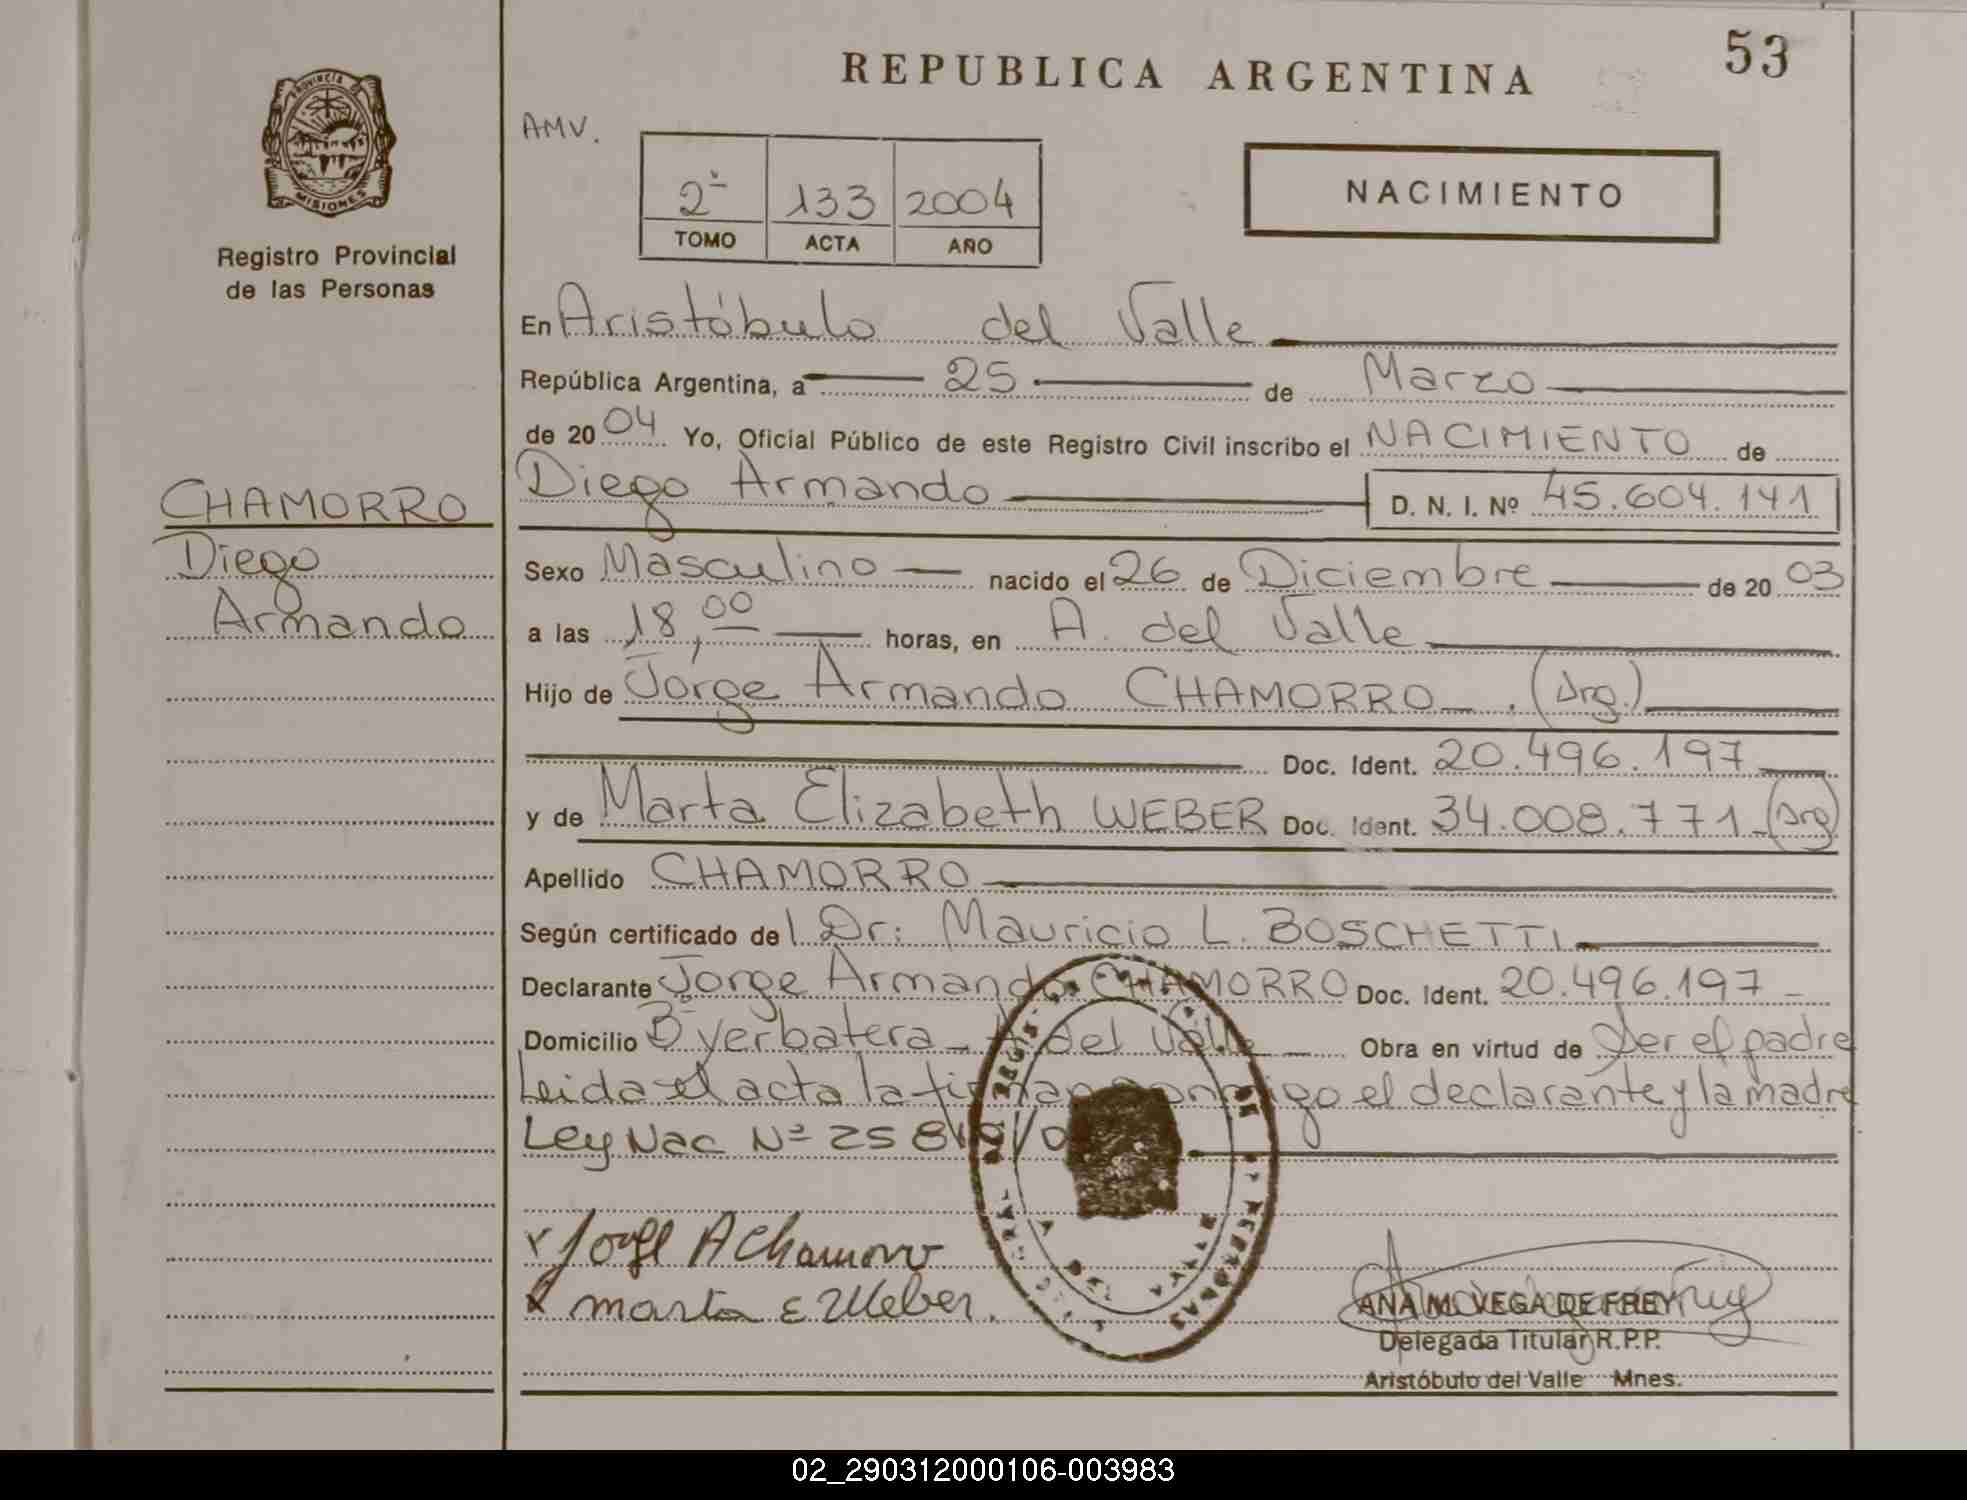 53
REPUBLICA ARGENTINA
PROVINCIA DE MISIONES
Registro Provincial
de las Personas
AMV.
2º 133 2004
TOMO ACTA AÑO
NACIMIENTO
En Aristóbulo del Valle
República Argentina, a 25 de Marzo
de 2004 Yo, Oficial Público de este Registro Civil inscribo el NACIMIENTO de
Diego Armando D. N. I. Nº 45.604.141
CHAMORRO
Diego
Armando
Sexo Masculino nacido el 26 de Diciembre de 2003
a las 18,00 horas, en A. del Valle
Hijo de Jorge Armando CHAMORRO. (Arg.)
Doc. Ident. 20.496.197
y de Marta Elizabeth WEBER Doc. Ident. 34.008.771 (Arg)
Apellido CHAMORRO
Según certificado del Dr: Mauricio L. BOSCHETTI
Declarante Jorge Armando CHAMORRO Doc. Ident. 20.496.197
Domicilio Bº yerbatera - A. del Valle Obra en virtud de Ser el padre
Leida el acta la firman conmigo el declarante y la madre
Ley Nac Nº 25
Jorge A Chamorro
Marta E Weber.
ANA M. VEGA DE FREY
Delegada Titular R.P.P.
Aristóbulo del Valle Mnes.
02_290312000106-003983